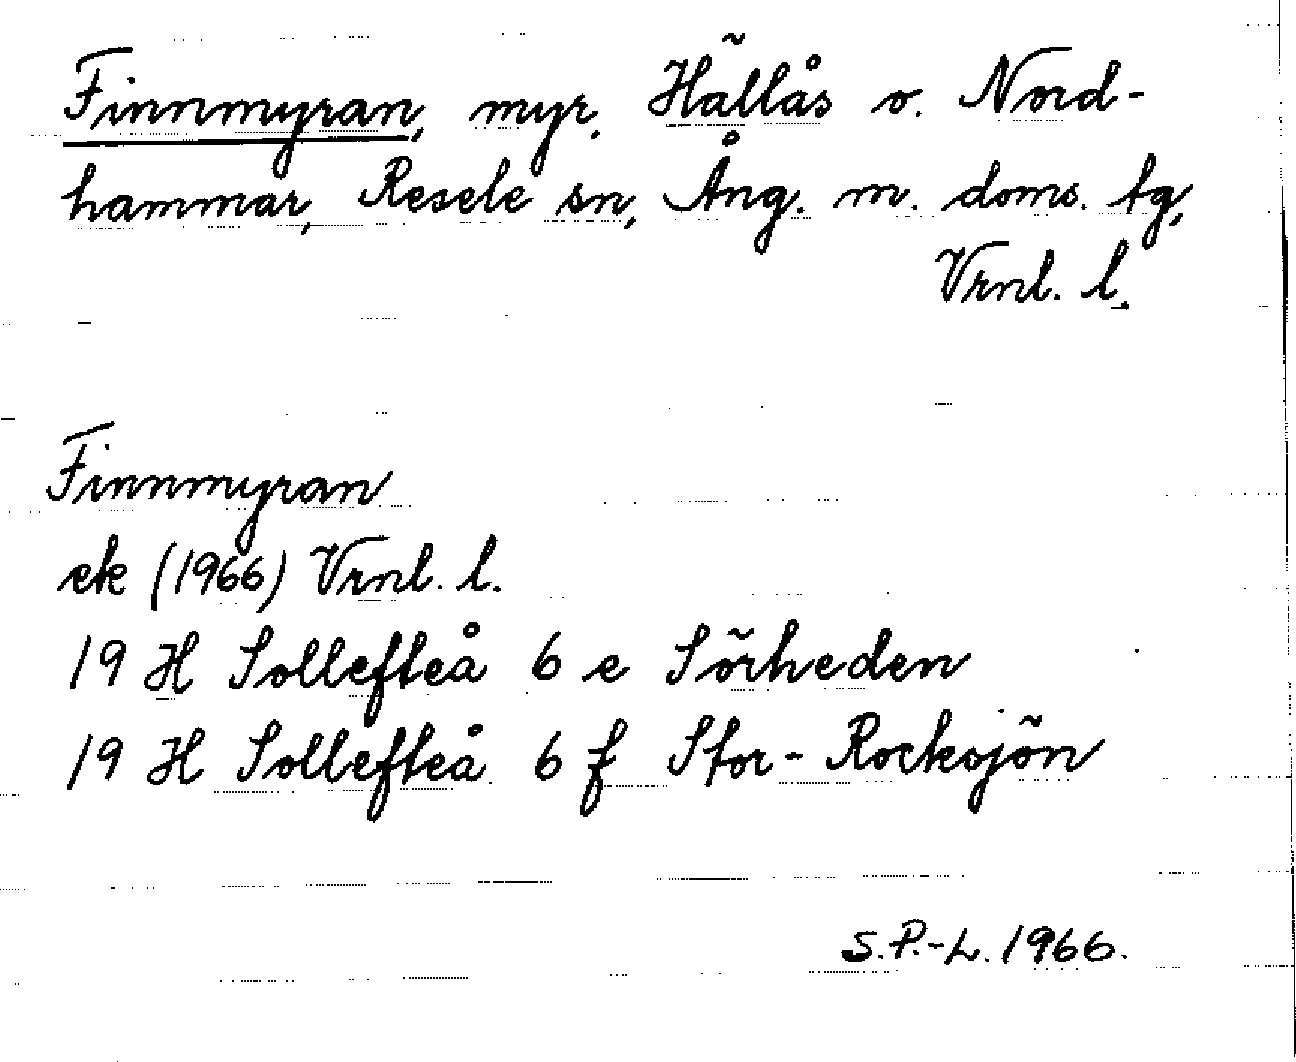 Finnmyran, myr, Hällås o. Nord-
hammar, Resele sn, Ång. m. doms. tg,
Vrnl. l.
Finnmyran
ek (1966) Vrnl. l.
19 H Sollefteå 6 e Sörheden
19 H Sollefteå 6 f Stor-Rocksjön
S.P.-L. 1966.